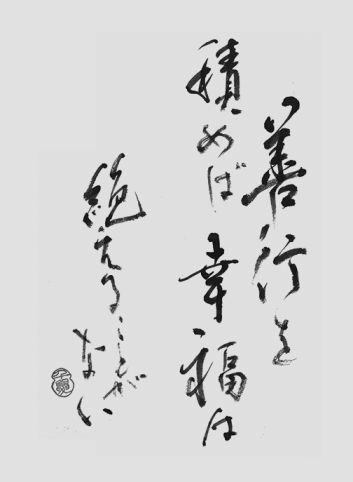 善行を
積めば幸福は
絶えることがない